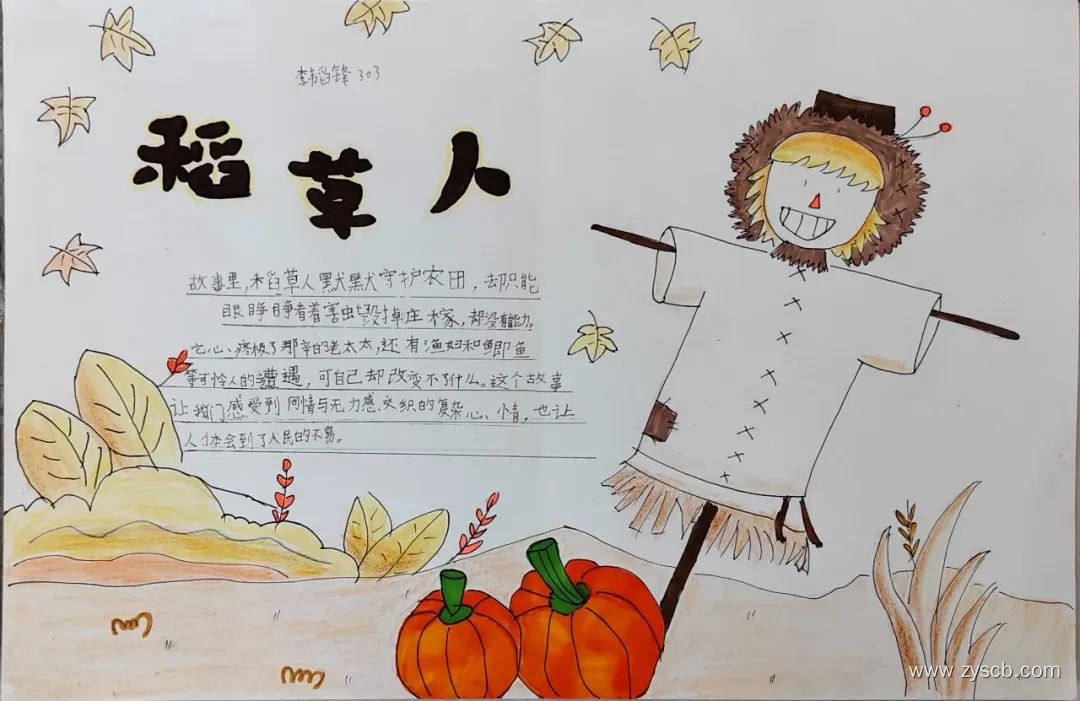 李韬锋 303
稻草人
故事里,稻草人默默守护农田,却只能
眼睁睁看着害虫毁掉庄稼,却没有能力。
它心疼极了那辛的老太太,还有渔妇和鲫鱼
等可怜人的遭遇,可自己却改变不了什么。这个故事
让我们感受到同情与无力感交织的复杂心情,也让
人体会到了人民的不易。
www.zyscb.com